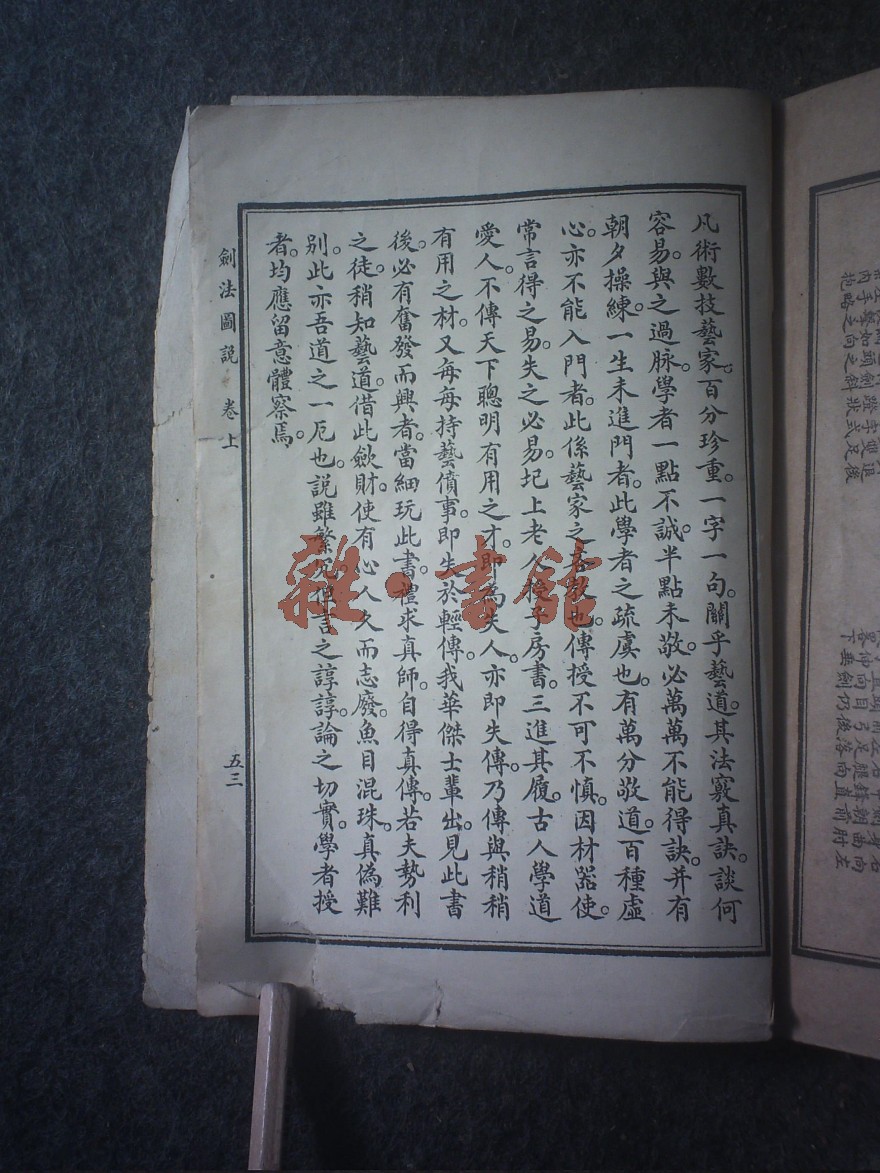 凡術數技藝家。百分珍重。一字一句。關乎藝道。其法竅真訣。談何
容易。與之過脉。學者一點不誠。半點未敬。必萬萬不能得訣。并有
朝夕操練。一生未進門者。此學者之疏虞也。有萬分敬道。百種虛
心。亦不能入門者。此係藝家之也。傳授不可不慎。因材器使。
常言得之易。失之必易。圯上老人授子房書。三進其履。古人學道
愛人。不傳天下聰明有用之才。即為失人。亦即失傳。乃傳與稍稍
有用之材。又每每持藝僨事。即失於輕傳。我華傑士輩出。見此書
後。必有奮發而興者。當細玩此書。禮求真師。自得真傳。若夫勢利
之徒。稍知藝道。借此歛財。使有心人久而志廢。魚目混珠。真偽難
别。此亦吾道之一厄也。說雖繁冗。但言之諄諄。論之切實。學者授
者。均應留意體察焉。
劍法圖說 卷上 五三
雜·書館